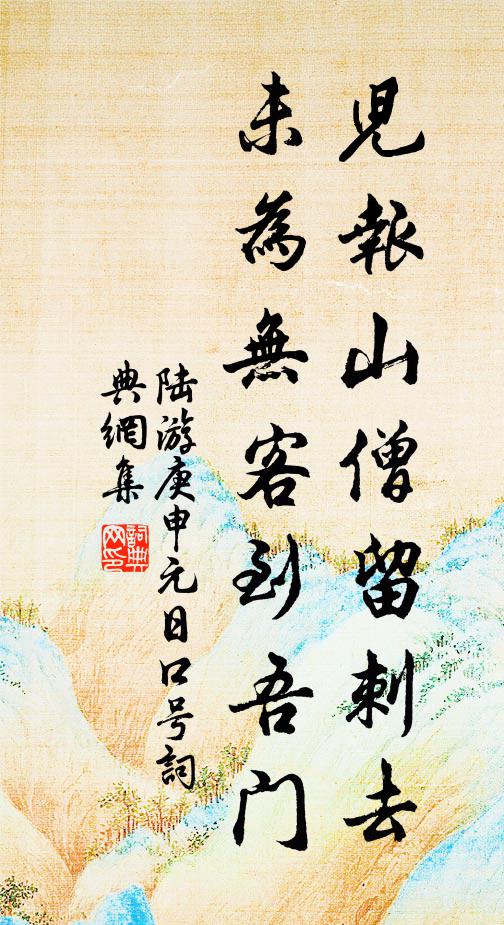 児報山僧留刺去
未為無客到吾門
陆游庚申元日口号詞
典網集
詞典网印